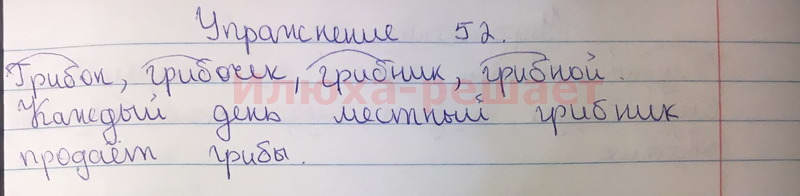 Упражнение 52.
Грибок, грибочек, грибник, грибной.
илюха-решает
Каждый день местный грибник
продаёт грибы.